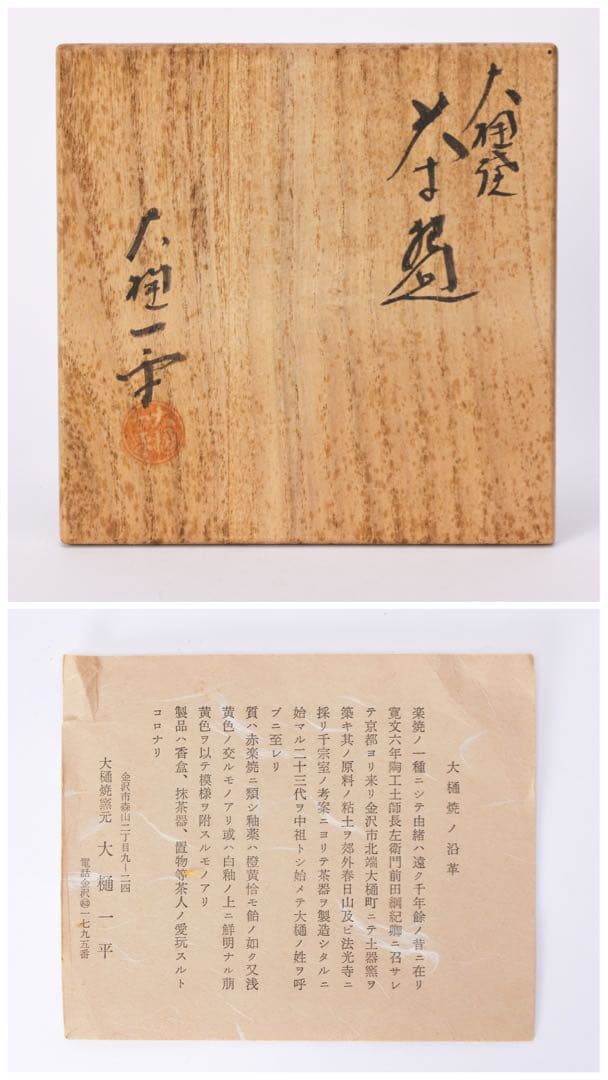 大樋焼
茶盌
大樋一平
大樋焼ノ沿革
楽焼ノ一種ニシテ由緒ハ遠ク千年餘ノ昔ニ在リ
寛文六年陶工土師長左衛門前田綱紀卿ニ召サレ
テ京都ヨリ来リ金沢市北端大樋町ニテ土器窯ヲ
築キ其ノ原料ノ粘土ヲ郊外春日山及ビ法光寺ニ
採リ千宗室ノ考案ニヨリテ茶器ヲ製造シタルニ
始マル二十三代ヲ中祖トシ始メテ大樋ノ姓ヲ呼
ブニ至レリ
質ハ赤楽焼ニ類シ釉薬ハ橙黄恰モ飴ノ如ク又浅
黄色ノ交ルモノアリ或ハ白釉ノ上ニ鮮明ナル萠
黄色ヲ以テ模様ヲ附スルモノアリ
製品ハ香盒、抹茶器、置物等茶人ノ愛玩スルト
コロナリ
金沢市森山二丁目九ー二四
大樋焼窯元 大樋一平
電話金沢 一七九五番